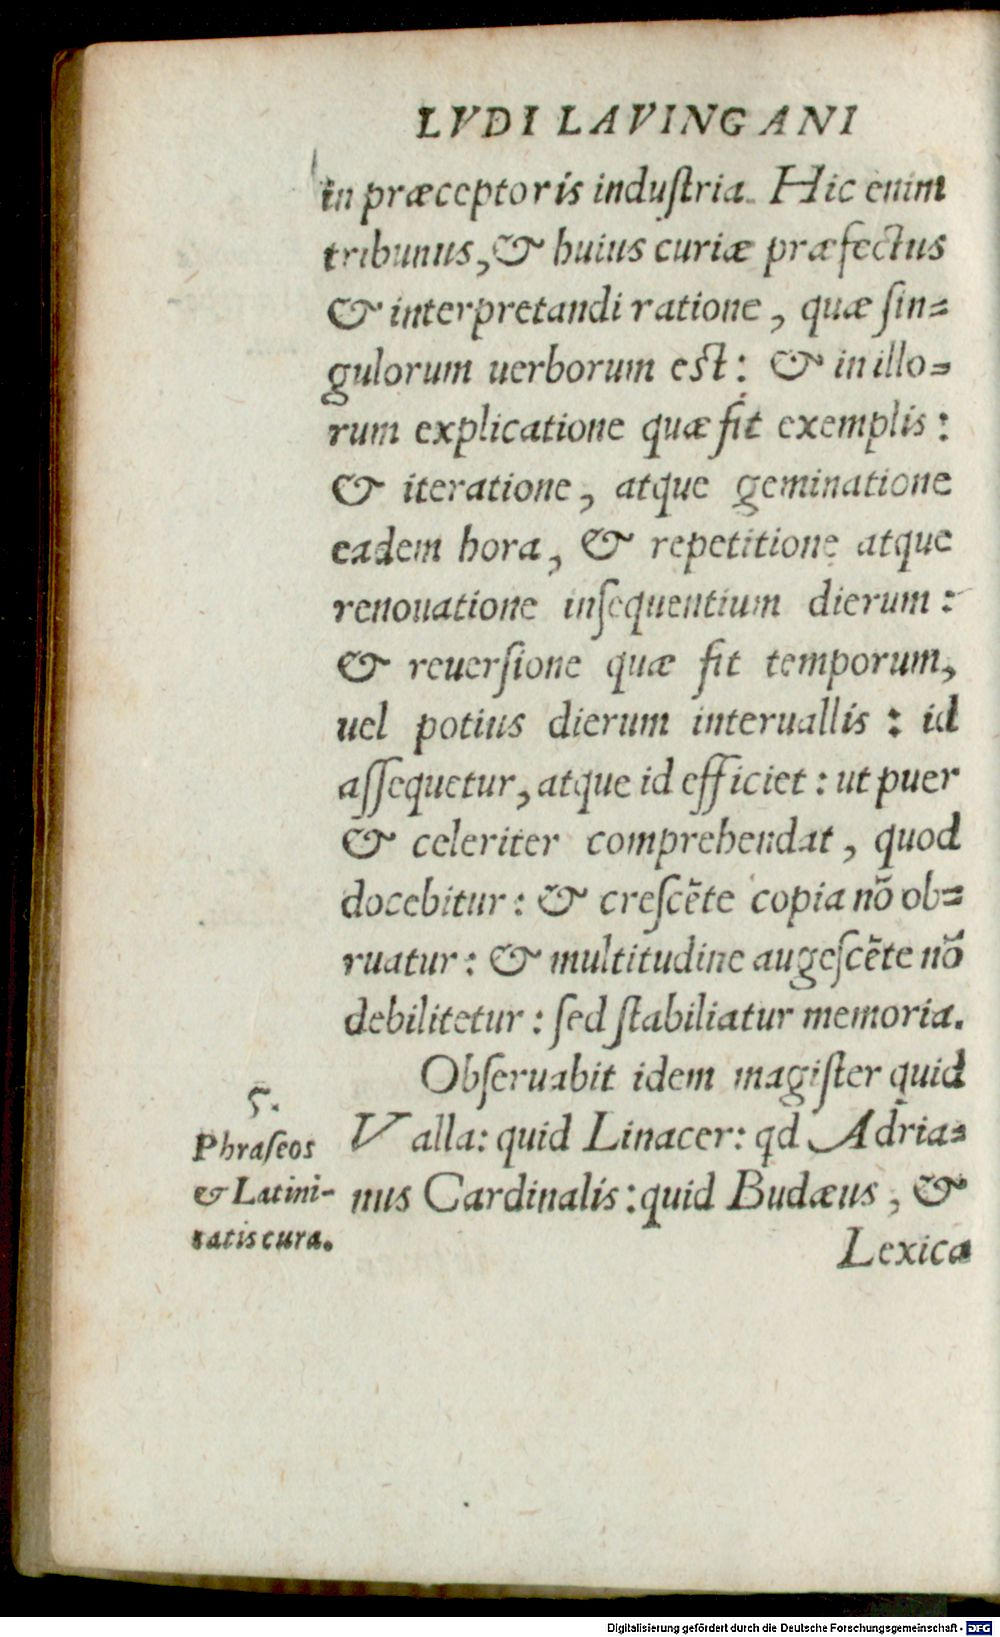 LVDI LAVINGANI
in præceptoris induſtria. Hic enim
tribunus, & huius curiæ præfectus
& interpretandi ratione, quæ ſin-
gulorum uerborum eſt: & in illo-
rum explicatione quæ fit exemplis:
& iteratione, atque geminatione
eadem hora, & repetitione atque
renouatione inſequentium dierum:
& reuerſione quæ fit temporum,
uel potius dierum interuallis: id
aſſequetur, atque id efficiet: ut puer
& celeriter comprehendat, quod
docebitur: & creſcẽte copia nõ ob-
ruatur: & multitudine augeſcẽte nõ
debilitetur: ſed ſtabiliatur memoria.
Obſeruabit idem magiſter quid
5.
Phraſeos
& Latini-
tatis cura.
Valla: quid Linacer: qd Adria-
nus Cardinalis: quid Budæus, &
Lexica
Digitalisierung gefördert durch die Deutsche Forschungsgemeinschaft - DFG